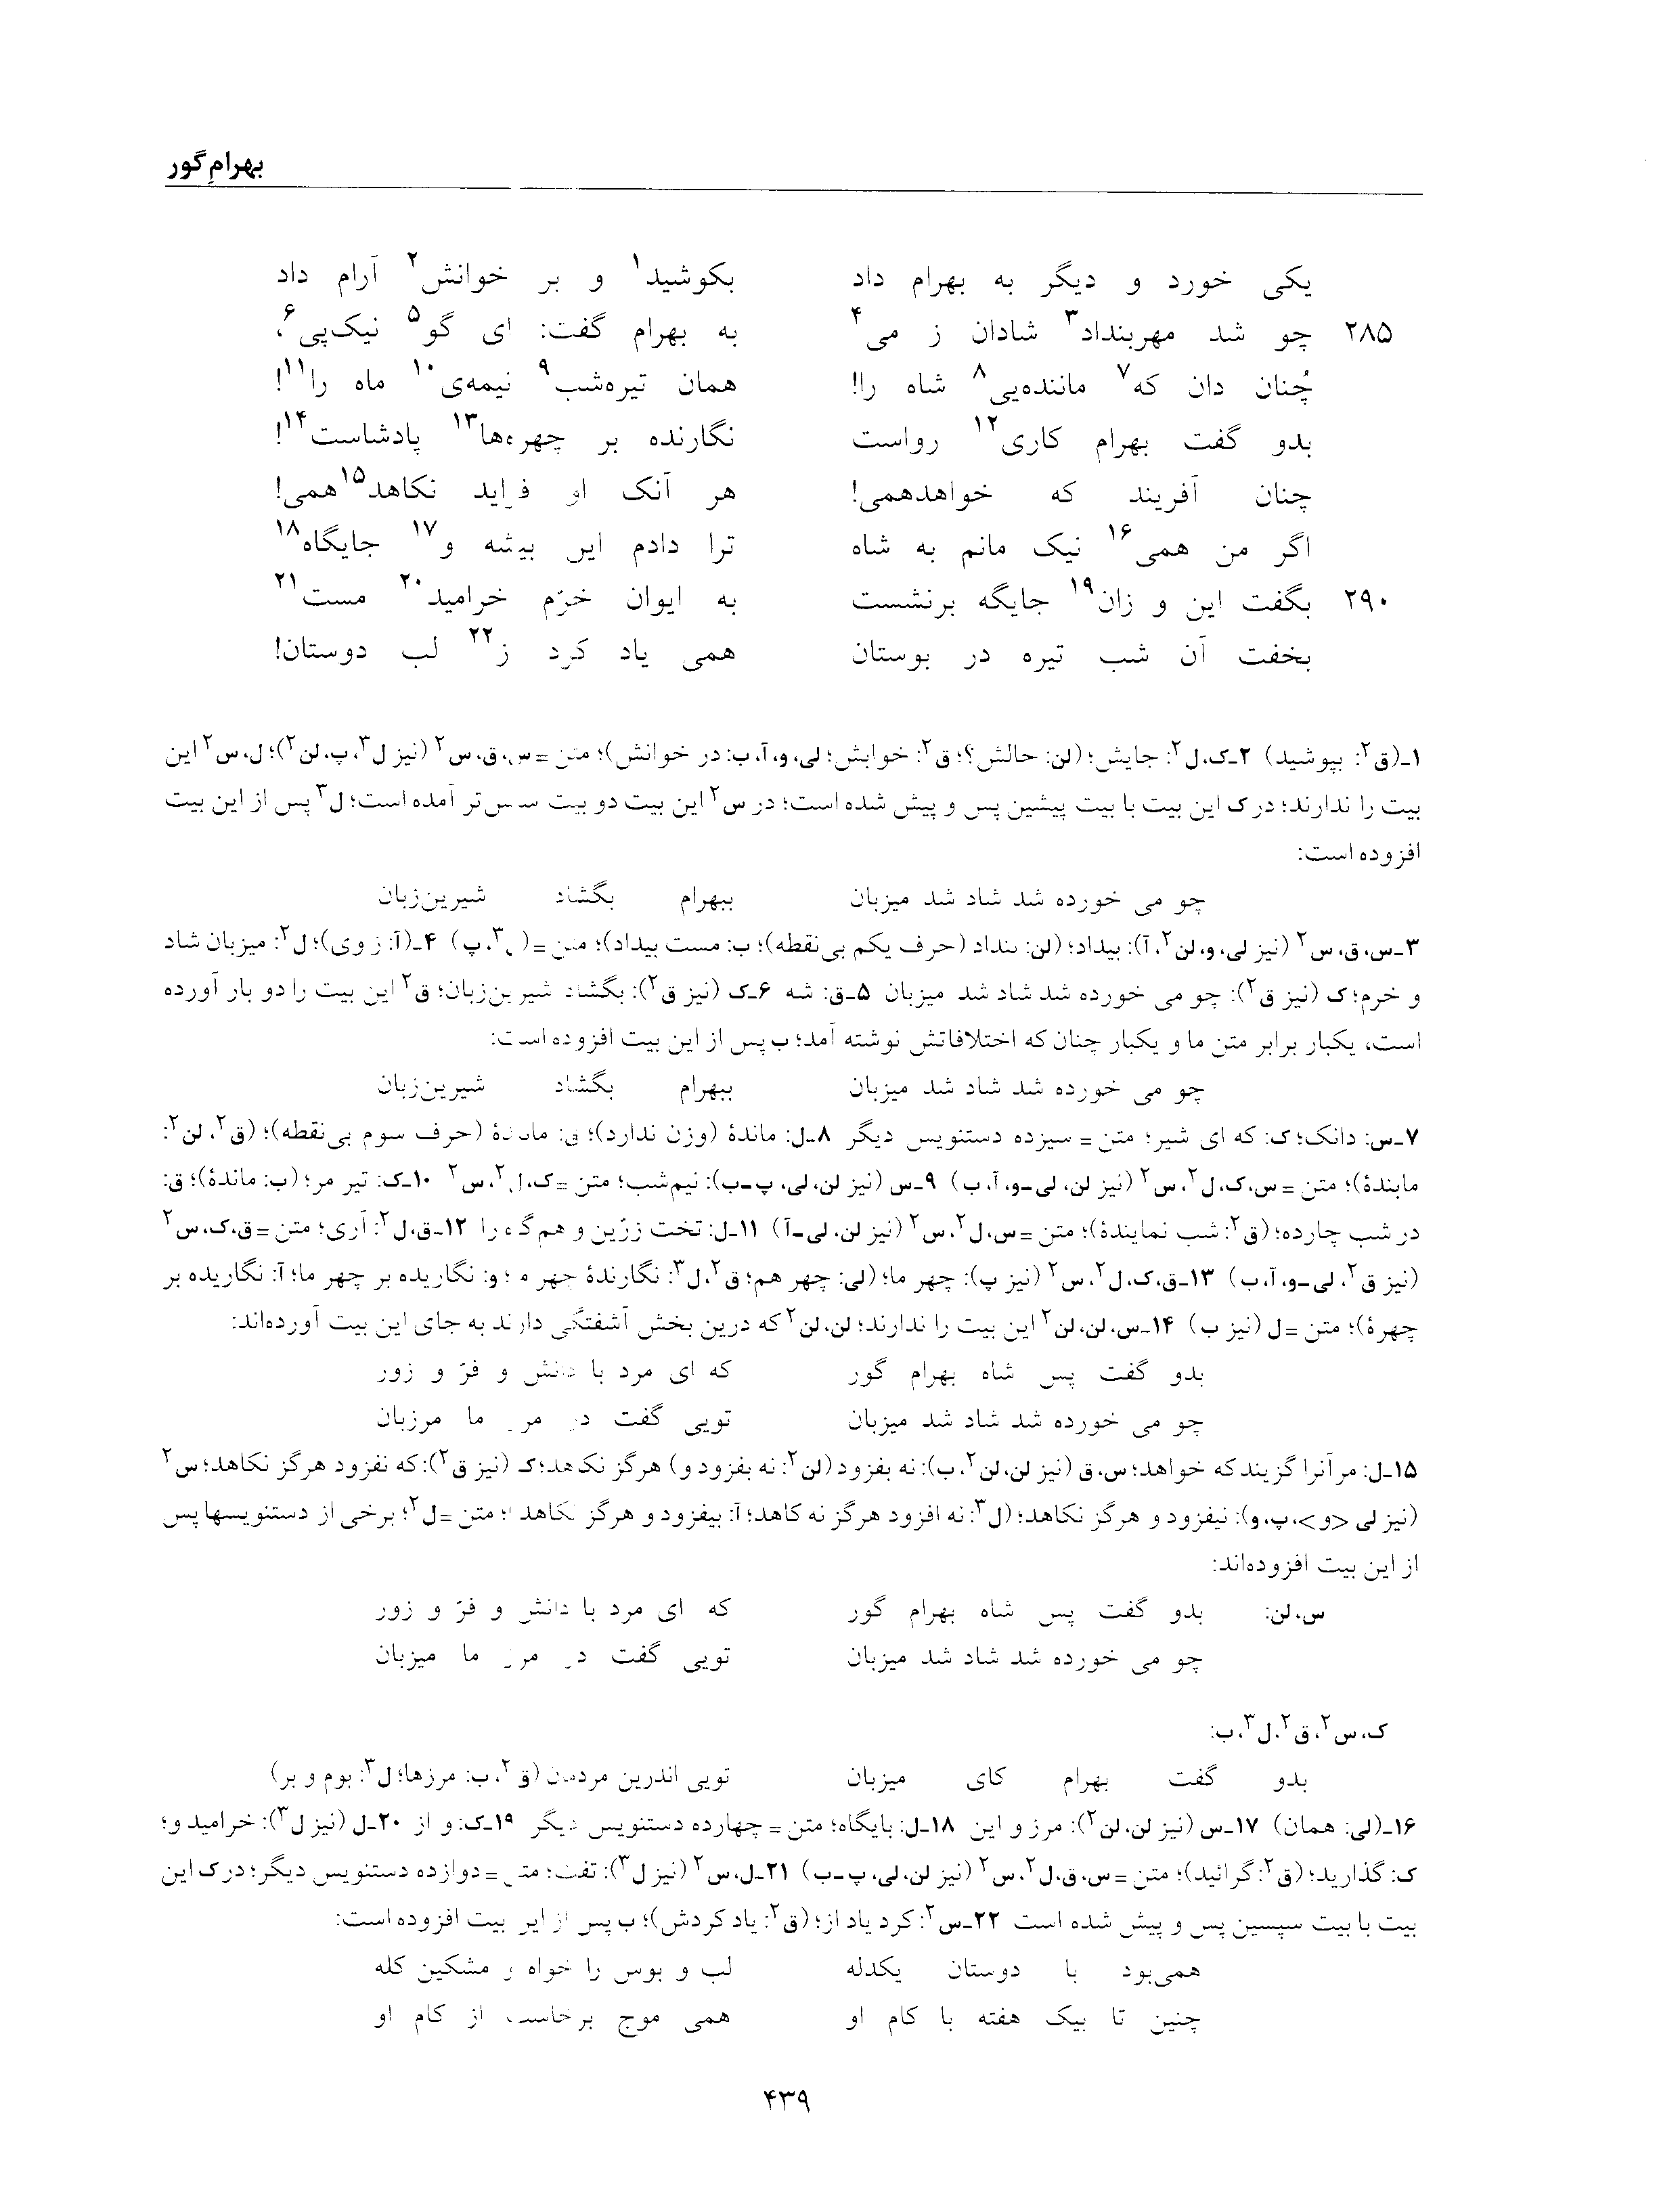 بهرامِ گور
یکی خورد و دیگر به بهرام داد بکوشید۱ و بر خوانش۲ آرام داد
۲۸۵ چو شد مهربنداد۳ شادان ز می۴ به بهرام گفت: ای گو۵ نیک‌پی۶،
چُنان دان که۷ ماننده‌یی۸ شاه را! همان تیره‌شب۹ نیمه‌ی۱۰ ماه را۱۱!
بدو گفت بهرام کاری۱۲ رواست نگارنده بر چهره‌ها۱۳ پادشاست۱۴!
چنان آفریند که خواهدهمی! هر آنک او فزاید نکاهد۱۵ همی!
اگر من همی۱۶ نیک مانم به شاه ترا دادم این بیشه و۱۷ جایگاه۱۸
۲۹۰ بگفت این و زان۱۹ جایگه برنشست به ایوان خرّم خرامید۲۰ مست۲۱
بخفت آن شب تیره در بوستان همی یاد کرد ز۲۲ لب دوستان!
۱ـ(ق۲: بپوشید) ۲ـک،ل۲: جایش؛ (لن: حالش؟؛ ق۲: خوابش؛ لی،و،آ،ب: در خوانش)؛ متن =س،ق،س۲ (نیز ل۳، پ،لن۲)؛ ل،س۲ این
بیت را ندارند؛ در ک این بیت با بیت پیشین پس و پیش شده است؛ در س۲ این بیت دو بیت سپس‌تر آمده است؛ ل۳ پس از این بیت
افزوده است:
چو می خورده شد شاد شد میزبان ببهرام بگشاد شیرین‌زبان
۳ـس،ق،س۲ (نیز لی،و،لن۲،آ): بیداد؛ (لن: بنداد (حرف یکم بی‌نقطه)؛ ب: مست بیداد)؛ متن =(ل۳،پ) ۴ـ(آ: ز وی)؛ ل۲: میزبان شاد
و خرم؛ ک (نیز ق۲): چو می خورده شد شاد شد میزبان ۵ـق: شه ۶ـک (نیز ق۲): بگشاد شیرین‌زبان؛ ق۲ این بیت را دو بار آورده
است، یکبار برابر متن ما و یکبار چنان که اختلافاتش نوشته آمد؛ ب پس از این بیت افزوده است:
چو می خورده شد شاد شد میزبان ببهرام بگشاد شیرین‌زبان
۷ـس: دانک؛ ک: که ای شیر؛ متن = سیزده دستنویس دیگر ۸ـل: ماندهٔ (وزن ندارد)؛ ق: ماندهٔ (حرف سوم بی‌نقطه)؛ (ق۲، لن۲:
مابندهٔ)؛ متن =س،ک،ل۲،س۲ (نیز لن، لی-و،آ،ب) ۹ـس (نیز لن،لی، پ-ب): نیم‌شب؛ متن =ک،ل۲،س۲ ۱۰ـک: تیر مر؛ (ب: ماندهٔ)؛ ق:
در شب چارده؛ (ق۲: شب نمایندهٔ)؛ متن =س،ل۲،س۲ (نیز لن، لی-آ) ۱۱ـل: تخت زرّین و هم گاه را ۱۲ـق،ل۲: آری؛ متن =ق،ک،س۲
(نیز ق۲، لی-و،آ،ب) ۱۳ـق،ک،ل۲،س۲ (نیز پ): چهر ما؛ (لی: چهر هم؛ ق۲،ل۳: نگارندهٔ چهر ما؛ و: نگاریده بر چهر ما؛ آ: نگاریده بر
چهرهٔ)؛ متن =ل (نیز ب) ۱۴ـس،لن،لن۲ این بیت را ندارند؛ لن،لن۲ که درین بخش آشفتگی دارند به جای این بیت آورده‌اند:
بدو گفت پس شاه بهرام گور که ای مرد با دانش و فرّ و زور
چو می خورده شد شاد شد میزبان تویی گفت در مرز ما مرزبان
۱۵ـل: مر آنرا گزیند که خواهد؛ س،ق (نیز لن،لن۲،ب): نه بفزود (لن۲: نه بفزود و) هرگز نکاهد؛ ک (نیز ق۲): که نفزود هرگز نکاهد؛ س۲
(نیز لی <و>،پ،و): نیفزود و هرگز نکاهد؛ (ل۳: نه افزود هرگز نه کاهد؛ آ: بیفزود و هرگز نکاهد)؛ متن =ل۲؛ برخی از دستنویسها پس
از این بیت افزوده‌اند:
س،لن: بدو گفت پس شاه بهرام گور که ای مرد با دانش و فرّ و زور
چو می خورده شد شاد شد میزبان تویی گفت در مرز ما میزبان
ک،س۲،ق۲،ل۳،ب:
بدو گفت بهرام کای میزبان تویی اندرین مردمان (ق۲،ب: مرزها؛ ل۳: بوم و بر)
۱۶ـ(لی: همان) ۱۷ـس (نیز لن،لن۲): مرز و این ۱۸ـل: بایگاه؛ متن = چهارده دستنویس دیگر ۱۹ـک: و از ۲۰ـل (نیز ل۳): خرامید و؛
ک: گذارید؛ (ق۲: گرائید)؛ متن =س،ق،ل۲،س۲ (نیز لن،لی، پ-ب) ۲۱ـل،س۲ (نیز ل۳): تفت؛ متن =دوازده دستنویس دیگر؛ در ک این
بیت با بیت سپسین پس و پیش شده است ۲۲ـس۲: کرد یاد از؛ (ق۲: یاد کردش)؛ ب پس از این بیت افزوده است:
همی‌بود با دوستان یکدله لب و بوس را خواه و مشکین کله
چنین تا بیک هفته با کام او همی موج برخاست از کام او
۴۳۹